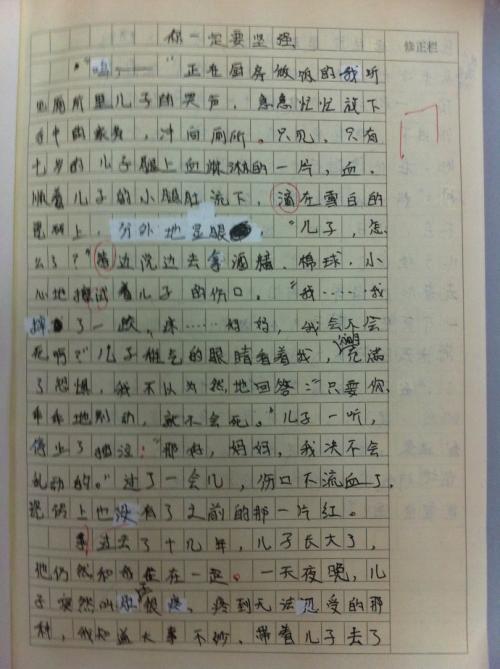 你一定要坚强
修正栏
"呜——"正在厨房做饭的我听
见厕所里儿子的哭声，急急忙忙放下
手中的家务，冲向厕所。只见，只有
七岁的儿子腿上血淋淋的一片，血，
顺着儿子的小腿肚流下，滴在雪白的
瓷砖上，分外地显眼。"儿子，怎
么了？"我边说边去拿酒精、棉球，小
心地擦试着儿子的伤口。"我……我
摔了一跤，疼……妈妈，我会不会
死啊？"儿子稚气的眼睛看着我，充满
了恐惧，我不以为然地回答："只要你
乖乖地别动，就不会死。"儿子一听，
停止了抽泣："那好，妈妈，我决不会
乱动的。"过了一会儿，伤口不流血了，
瓷砖上也没有了之前的那一片红。
过去了十几年，儿子长大了，
他仍然和我住在一起。一天夜晚，儿
子突然叫疼，疼到无法忍受的那
种，我知道大事不妙，带着儿子去了